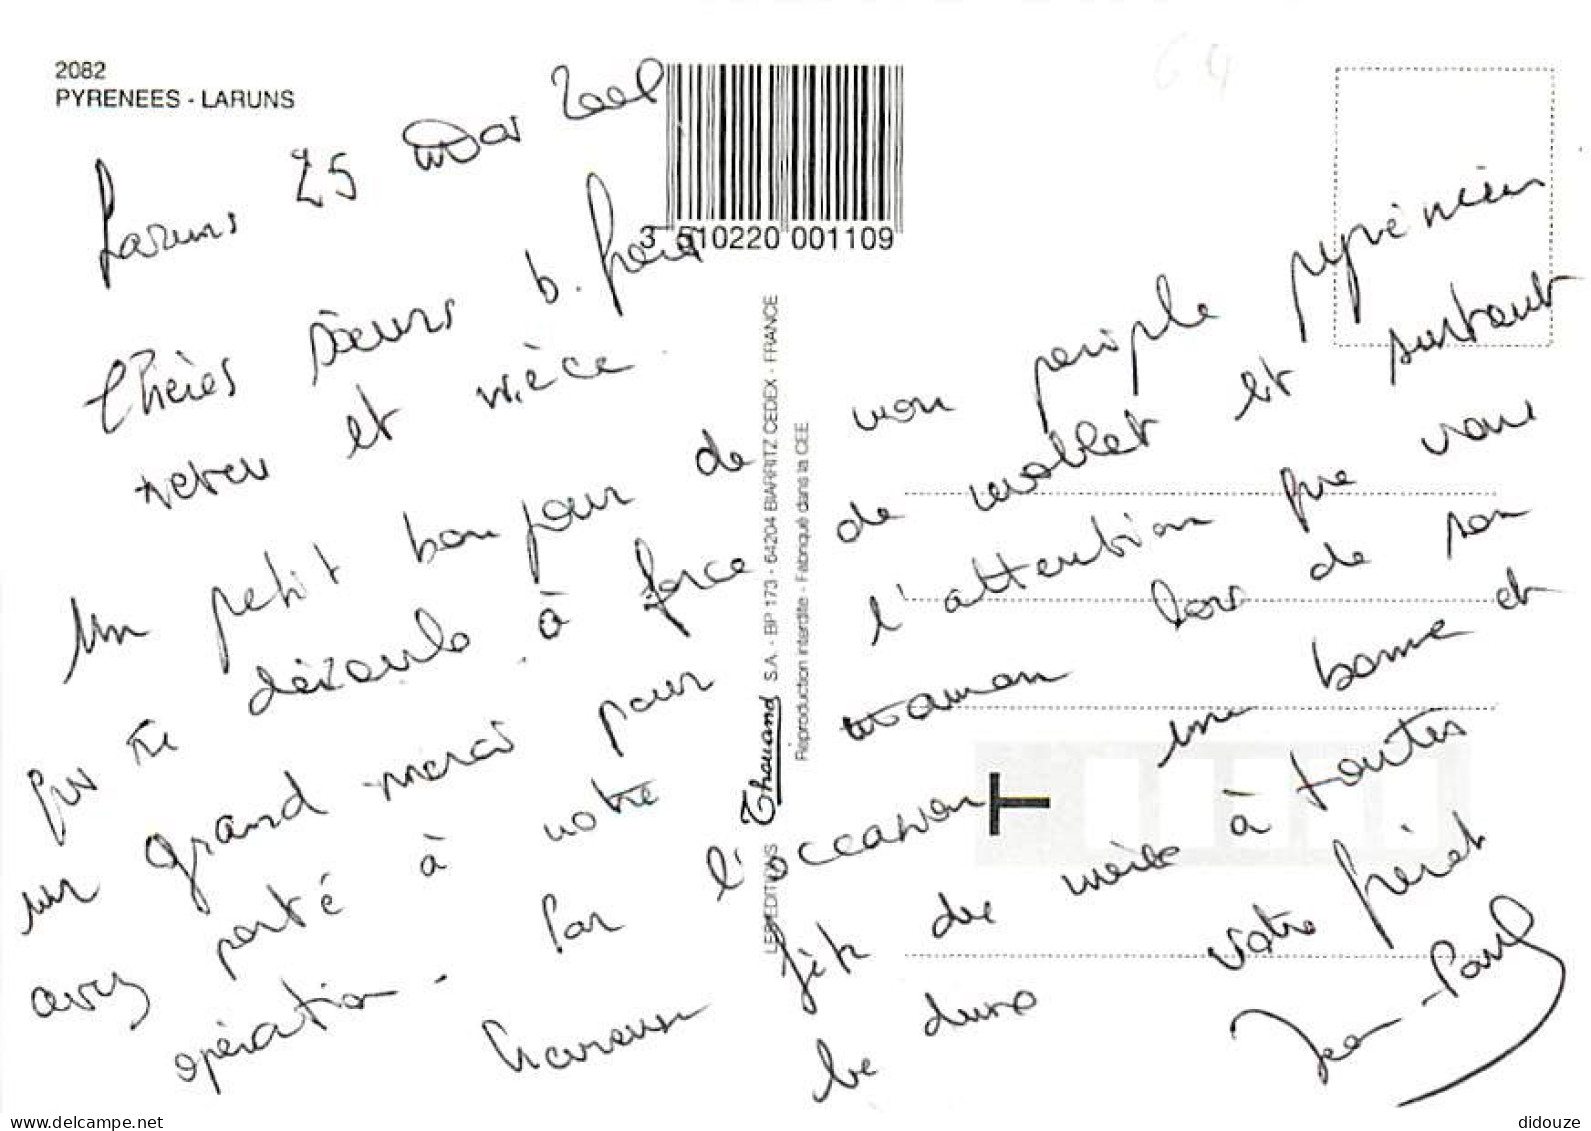 2082
PYRENEES - LARUNS
Laruns 25 Mai 2001
3 510220 001109
Chères Sœurs b. frère
neveu et nièce.
Un petit bonjour de
d'ézaule à force
un grand merci pour
avez porté à votre
opération. Par l'occasion
heureuse fête des mères à toutes
LES EDITIONS Thouand S.A. - BP 173 - 64204 BIARRITZ CEDEX - FRANCE
Reproduction interdite - Fabriqué dans la CEE
mon périple pyrénéen
de mollet et surtout
l'attention que vous
maman lors de son
une bonne et
votre frérot
Jean-Paul
64
delcampe.net
didouze